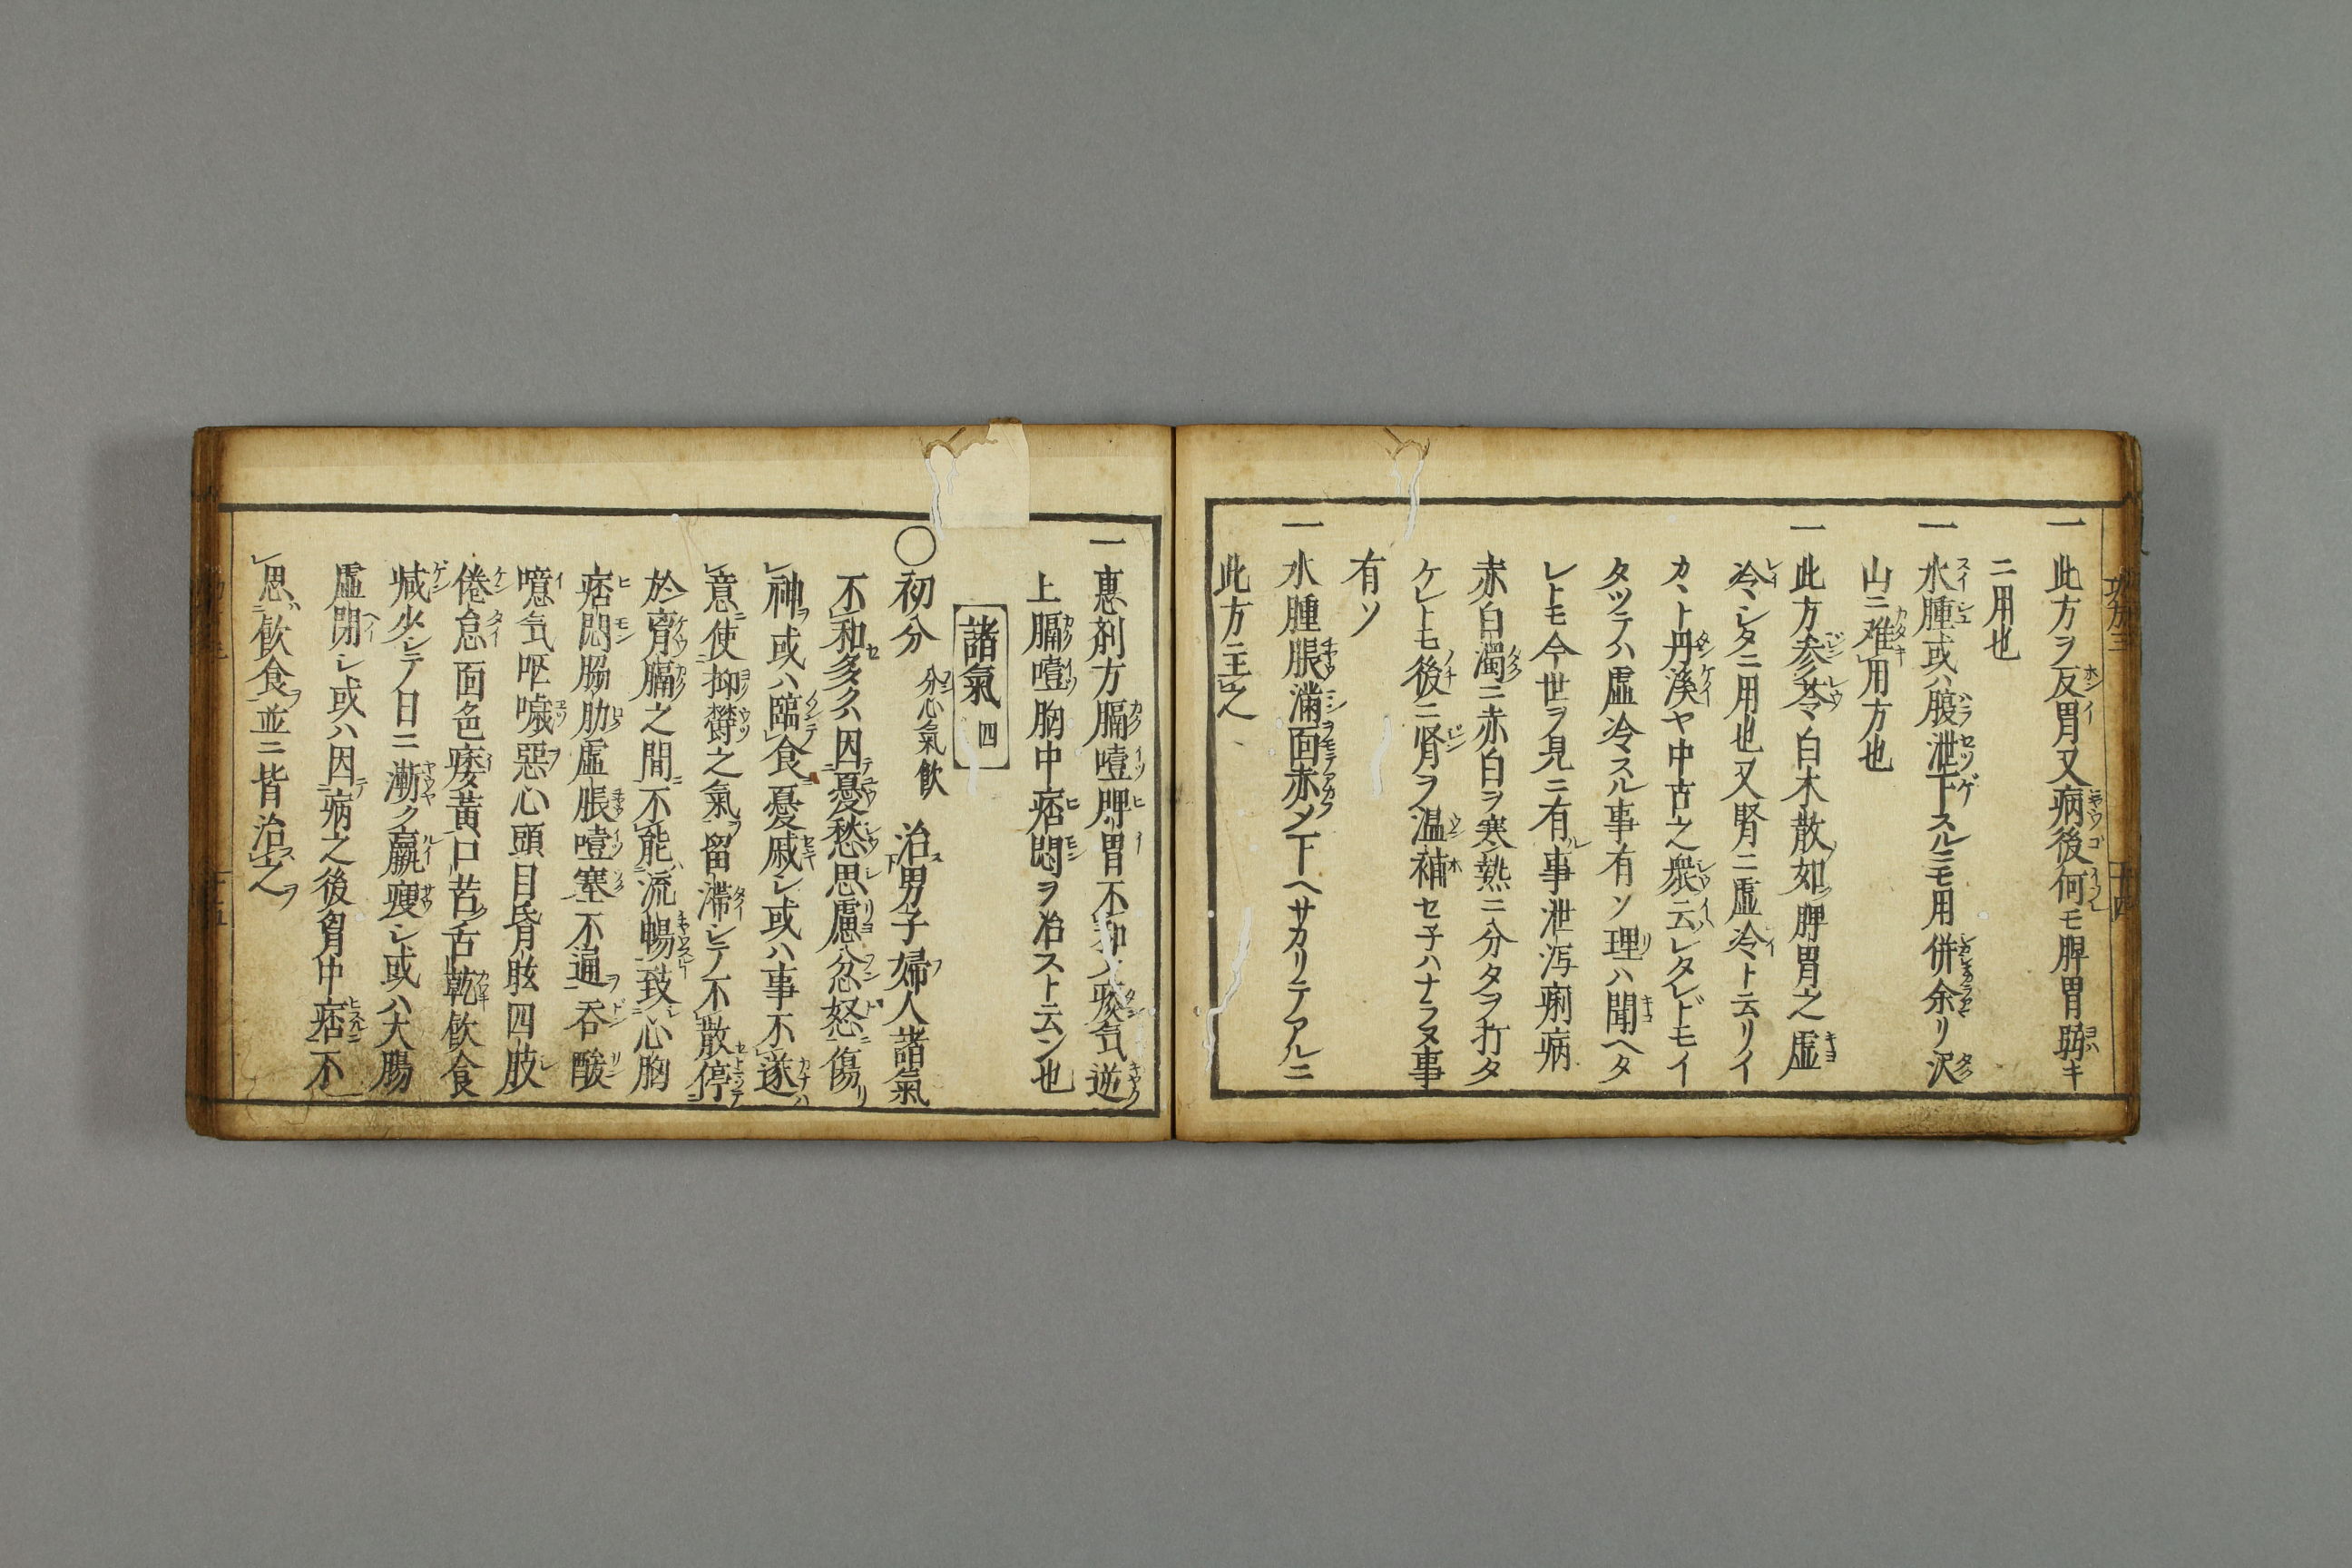 一此方ヲ反胃又病後何モ脾胃弱キ
ニ用也
一水腫或ハ腹泄下スルニモ用併余リ沢
山ニ难用方也
一此方参苓白木散如脾胃之虚
冷シタニ用也又腎ニ虚冷ト云リイ
カヽト丹溪ヤ中古之衆云レタレドモイ
タツテハ虚冷スル事有ソ理ハ聞ヘタ
レトモ今世ヲ見ニ有ル事泄泻痢病
赤白濁ニ赤白ヲ寒熱ニ分タヲ打タ
ケレトモ後ニ腎ヲ温補セ子ハナラヌ事
有ソ
一水腫脹滿面赤メ下ヘサカリテアルニ
此方主之
一惠剤方膈噎脾胃不和痰気逆
上膈噎胸中痞悶ヲ冶スト云ン也
諸氣 四
〇初分 分心氣飲 治男子婦人諸氣
不和多ハ因憂愁思慮忿怒傷
神或ハ臨食憂戚シ或ハ事不遂
意使抑欝之氣留滞シテ不散停
於胷膈之間不能流暢致心胸
痞悶脇肋虚脹噎塞不通吞酸
噫気呕噦惡心頭目昏眩四肢
倦怠面色痿黄口苦舌乾飲食
减少シテ日ニ漸ク羸瘦シ或ハ大腸
虚閉シ或ハ因病之後胷中痞不
思飲食並ニ皆治之